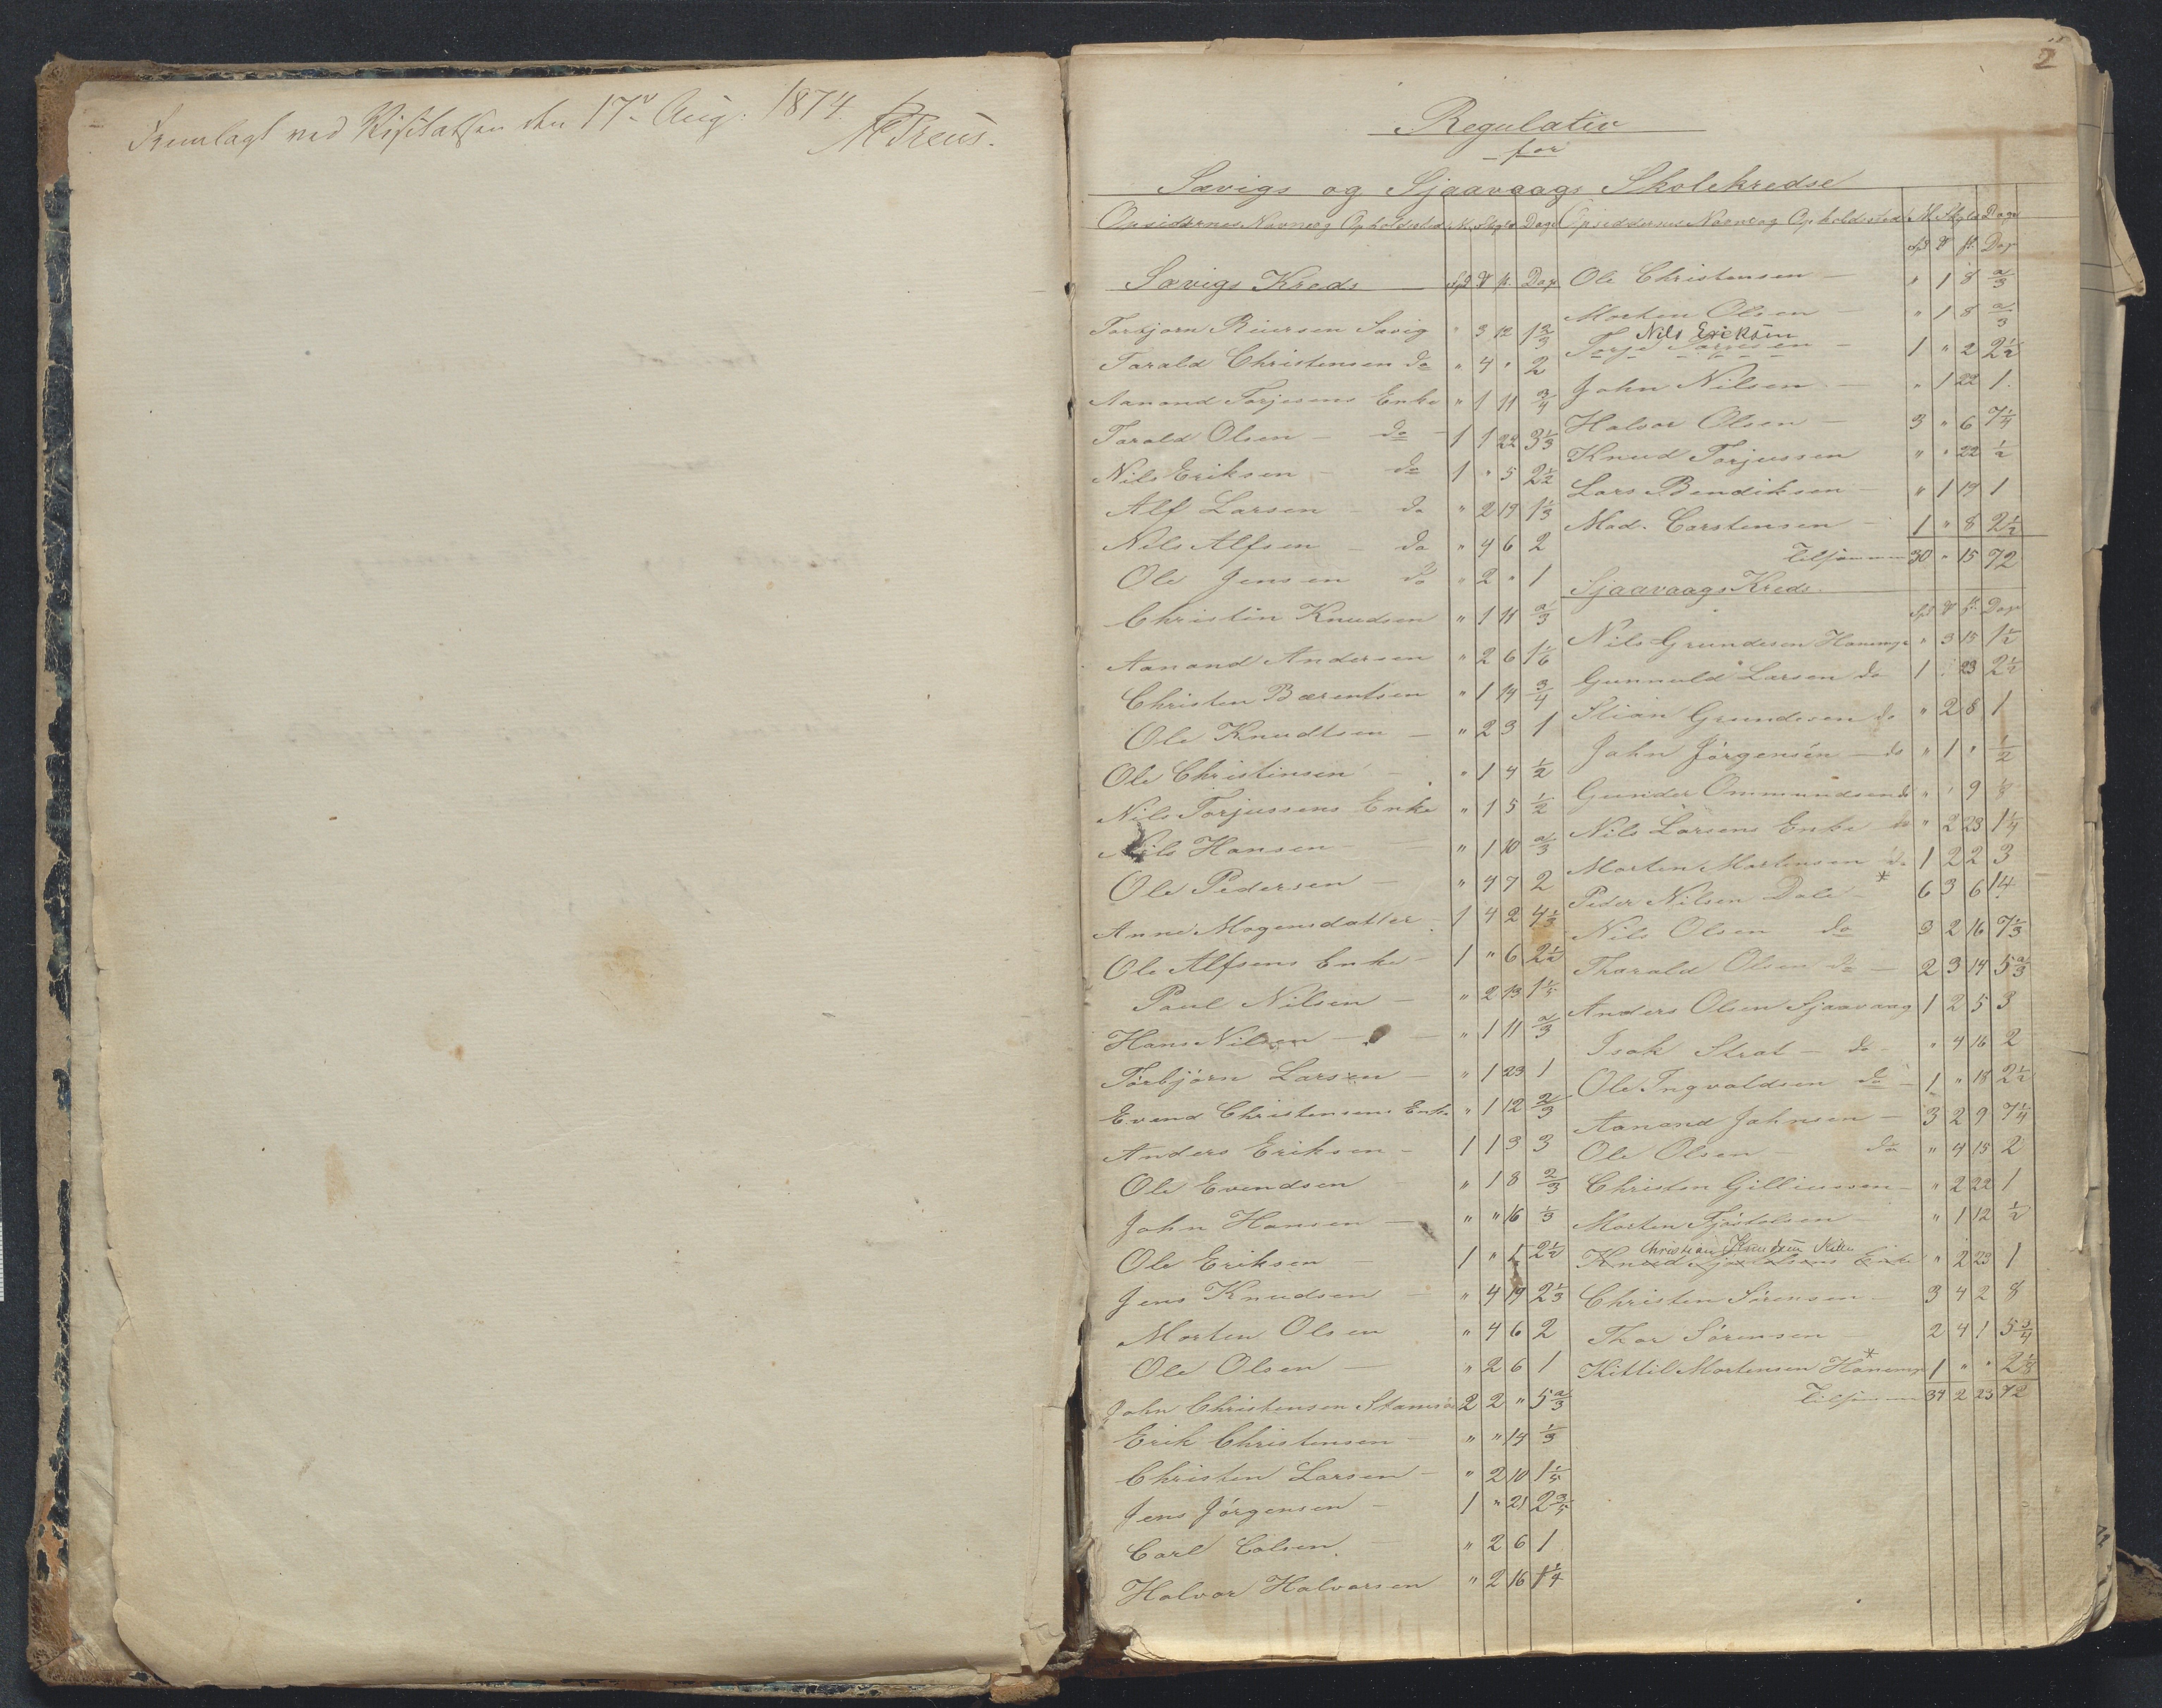 Fremlagt ved Visitatsen den 17de Aug. 1874.
2
Regulativ
for
Sævigs og Sjaavaags Skolekredse
Opsiddernes Navne og Opholdssted M. Skyld Dage
Sævigs Kreds Spd ₰ ß. Dage
Torbjørn Reiersen Sævig " 3 12 1 2/3
Tarald Christensen do " 4 " 2
Aanond Torjesens Enke " 1 11 3/4
Tarald Olsen - do - 1 1 22 3 1/3
Nils Eriksen - do 1 " 5 2 1/2
Alf Larsen - do " 2 19 1 1/3
Nils Alfsen - do " 4 6 2
Ole Jensen do " 2 " 1
Christin Knudsen " 1 11 2/3
Aanond Andersen " 2 6 1 1/6
Christen Bærentsen " 1 14 3/4
Ole Knudtsen - " 2 3 1
Ole Christinsen - " 1 4 1/2
Nils Torjussens Enke " 1 5 1/2
Nils Hansen - " 1 10 2/3
Ole Pedersen - " 4 7 2
Anne Mogensdatter 1 4 2 4 1/3
Ole Alfsens Enke - 1 " 6 2 1/2
Paul Nilsen - " 2 13 1 1/5
Hans Nilsen - " 1 11 2/3
Torbjørn Larsen - " 1 23 1
Evend Christensens Enke " 1 12 2/3
Anders Eriksen - 1 1 3 3
Ole Evendsen " 1 8 2/3
John Hansen - " " 16 1/3
Ole Eriksen - 1 " 2 1/2
Jens Knudsen - " 4 19 2 1/3
Morten Olsen " 4 6 2
Ole Olsen - " 2 6 1
John Christensen 2 2 " 5 2/3
Erik Christensen - " " 14 1/3
Christen Larsen - " 2 10 1 1/5
Jens Jörgensen - 1 " 21 2 3/5
Carl Colsen - " 2 6 1
Halvor Halvorsen " 2 16 1 1/4
Opsiddernes Navne og Opholdssted M. Skyld Dage
Spd ₰ ß. Dage
Ole Christensen - " 1 8 2/3
Morten Olsen - " 1 8 2/3
Nils Eriksen
Torje - 1 " 2 2 1/2
John Nilsen - " 1 22 1.
Halvor Olsen - 3 " 6 7 1/4
Knud Torjussen " " 22 1/2
Lars Bendiksen - " 1 19 1
Mad. Carstensen - 1 " 8 2 1/2
Tilsammen 30 " 15 72
Sjaavaags Kreds.
Spd ₰ ß. Dage
Nils Grundesen " 3 15 1 1/2
Gunnuld Larsen do 1 " 23 2 1/2
Stian Grundesen do " 2 8 1
John Jörgensen - do " 1 " 1/2
Gunder Ommundsen do " " 9
Nils Larsens Enke do " 2 23 1 1/4
Morten Mortensen do 1 2 2 3
Peder Nilsen Dale * 6 3 6 14.
Nils Olsen do 3 2 16 7 1/3
Tharald Olsen do - 2 3 14 5 2/3
Anders Olsen Sjaavaag 1 2 5 3
Isak Strat - do " 4 16 2
Ole Ingvaldsen do - 1 " 18 2 1/2
Aanond Johnsen - 3 2 9 7 1/4
Ole Olsen - do " 4 15 2
Christen Gilliussen - " 2 22 1
Morten Fjøstolsen - " 1 12 1/2
Christian Knudsen
Knud Fjøstolsens Enke " 2 23 1
Christen Sörensen - 3 4 2 8
Thor Sörensen - 2 4 1 5 3/4
Kittil Mortensen * 1 " " 2 1/3
Tilsammen 34 2 23 72